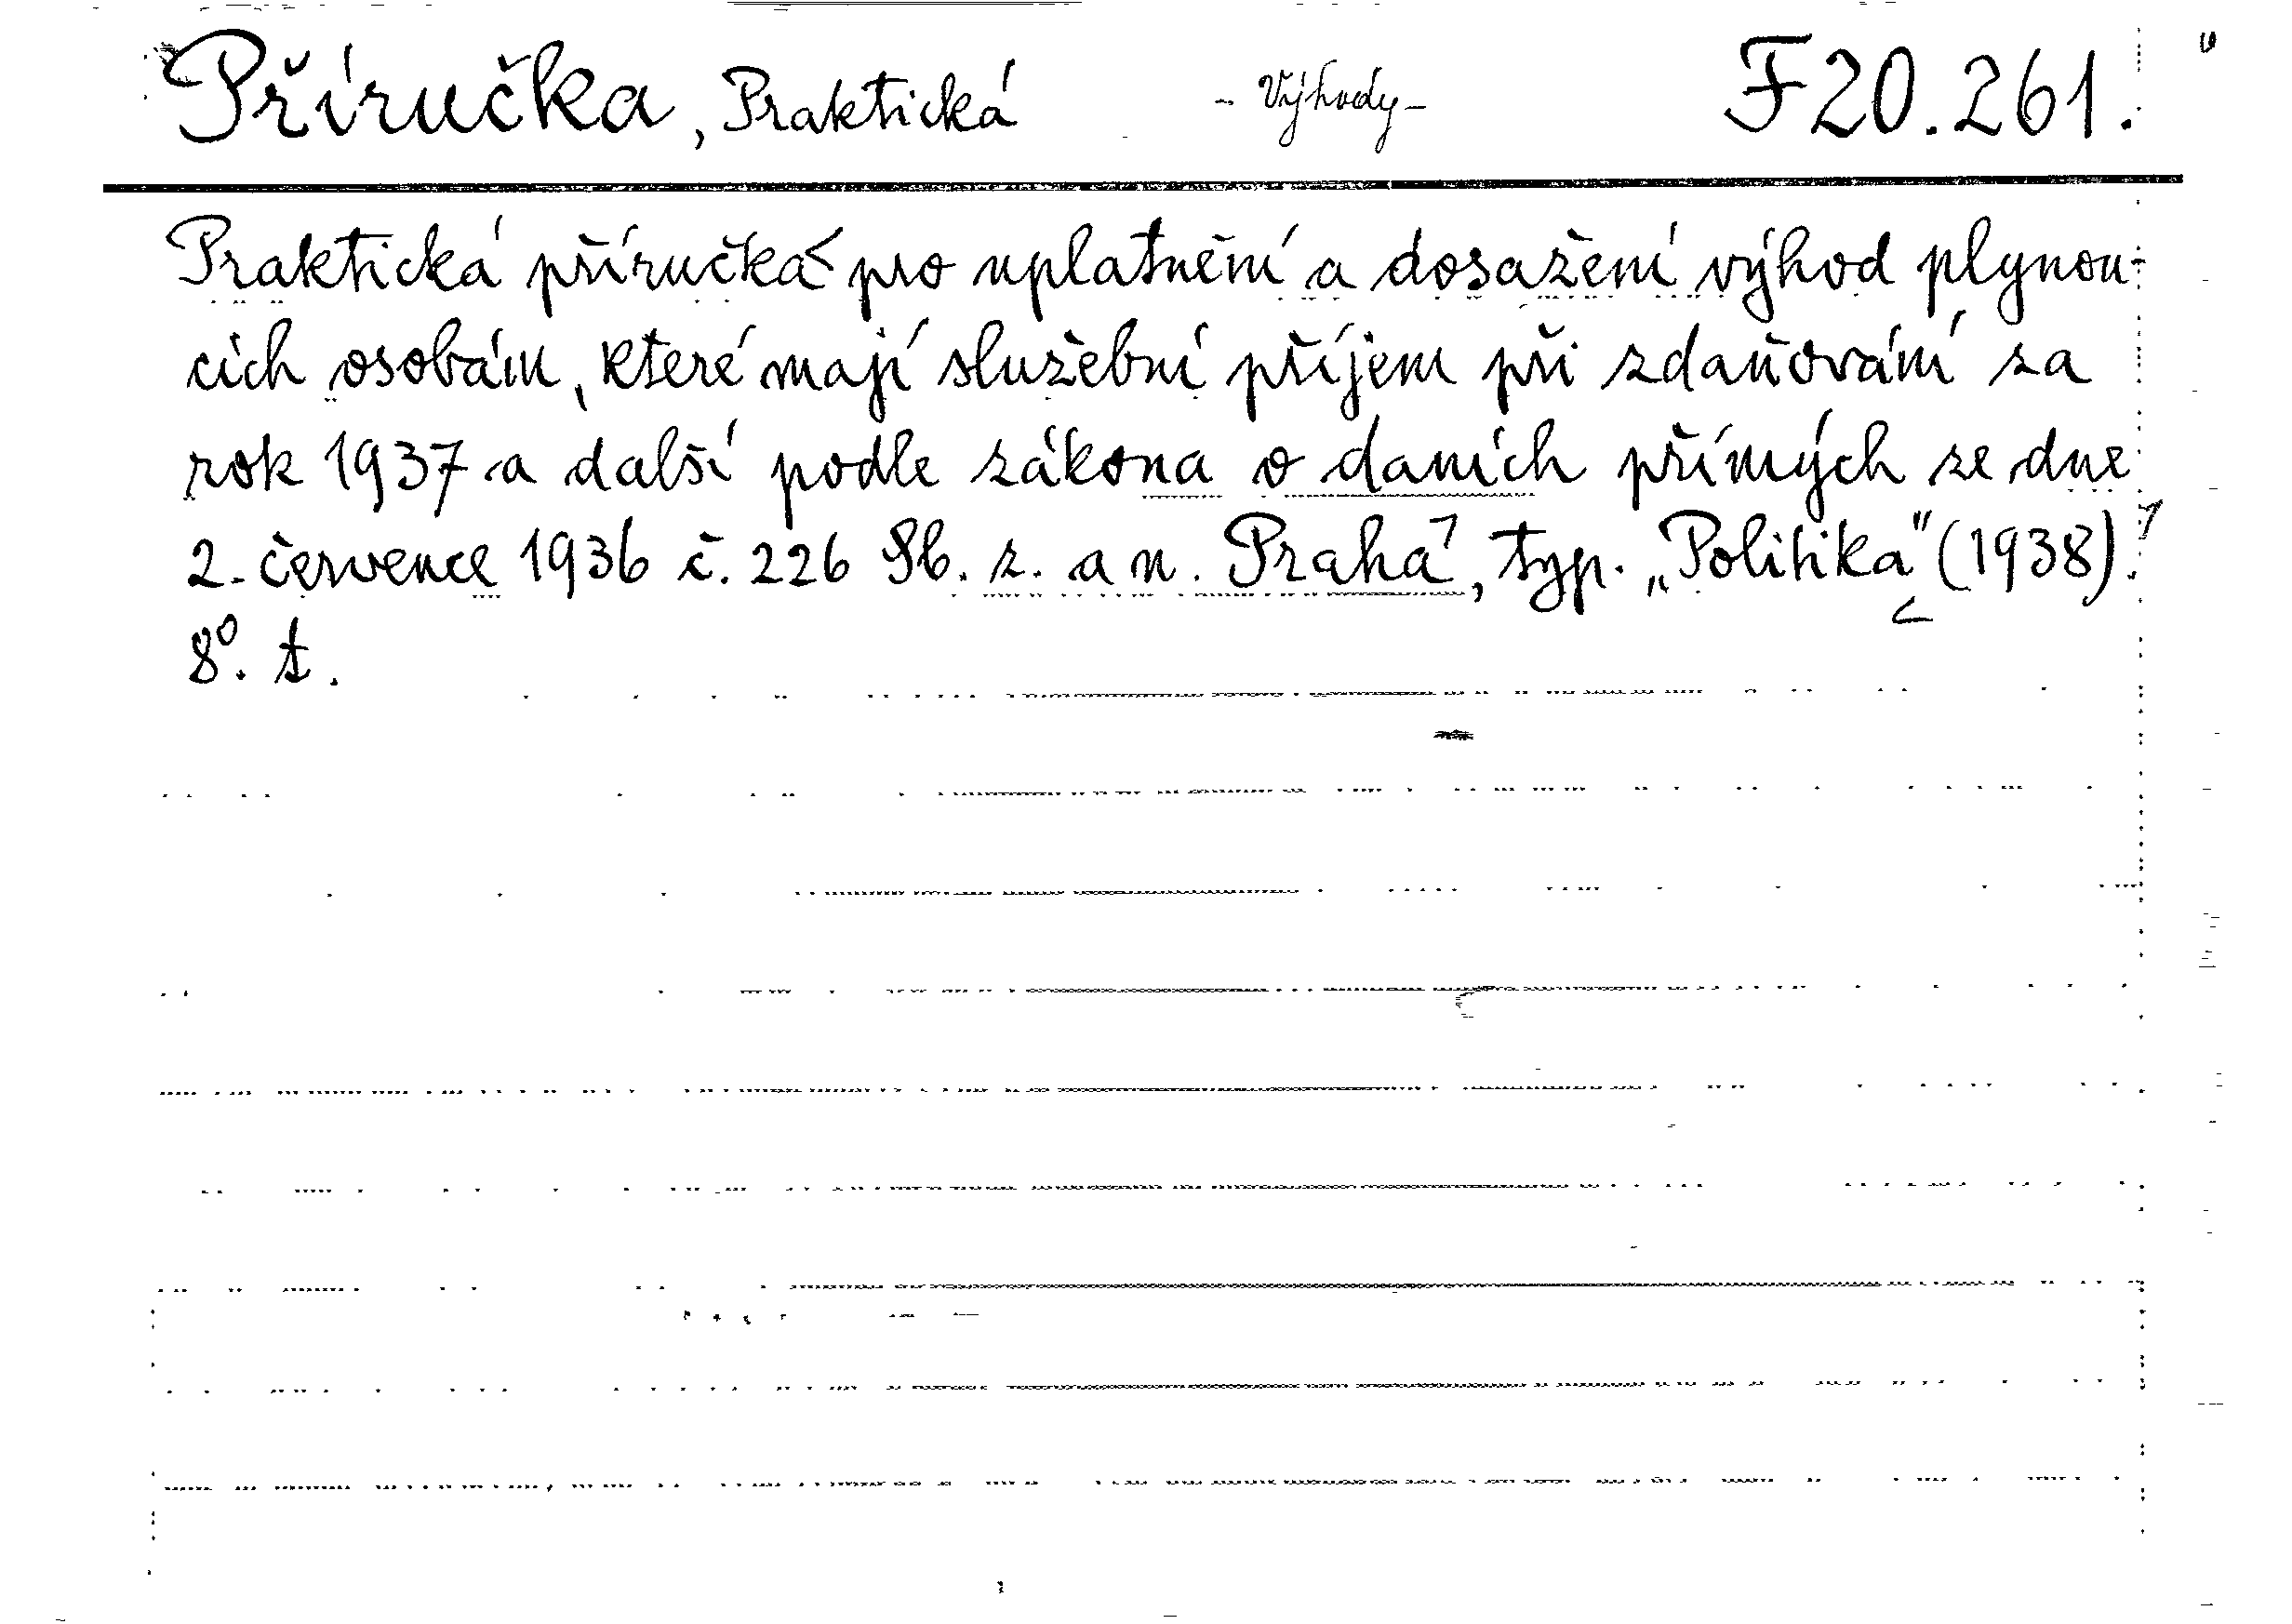 Příručka, Praktická - Výhody - F 20.261.
Praktická příručka pro uplatnění a dosažení výhod plynou-
cích osobám, které mají služební příjem při zdaňování za
rok 1937 a další podle zákona o daních přímých ze dne
2. července 1936 č. 226 Sb. z. a n. Praha, typ. „Politika" (1938).
8°. t.